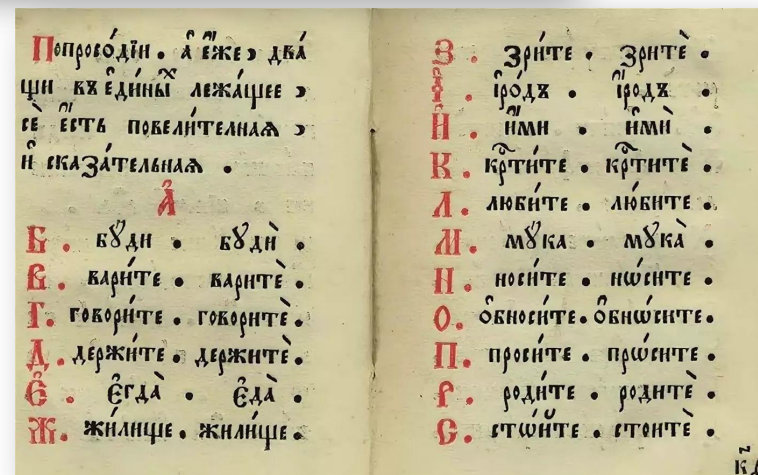 Попросѡ́дїи . а҆ є҆́же , два́
щи въ є҆ди́ны̑х лежа́щее ,
сѐ є҆́сть повели́телнаѧ ,
и҆ сказа́тельнаѧ .
А҆
Б . бꙋ́ди . бꙋдѝ .
В . вари́те . варитѐ .
Г . говори́те . говоритѐ .
Д . держи́те . держитѐ .
Е҆ . є҆гда̀ . є҆да̀ .
Ж . жи́лище . жили́ще .
З . зри́те . зритѐ .
І҆ . і҆ро́дъ . і҆́родъ .
И҆ . и҆́ми . и҆мѝ .
К . крⷭ҇ти́те . крⷭ҇титѐ .
Л . люби́те . лю́бите .
М . мꙋ́ка . мꙋка̀ .
Н . носи́те . нѡ́сите .
О . ѻ҆бноси́те . ѻ҆бнѡ́сите .
П . проси́те . прѡ́сите .
Р . роди́те . родитѐ .
С . стѡ́йте . стоитѐ .